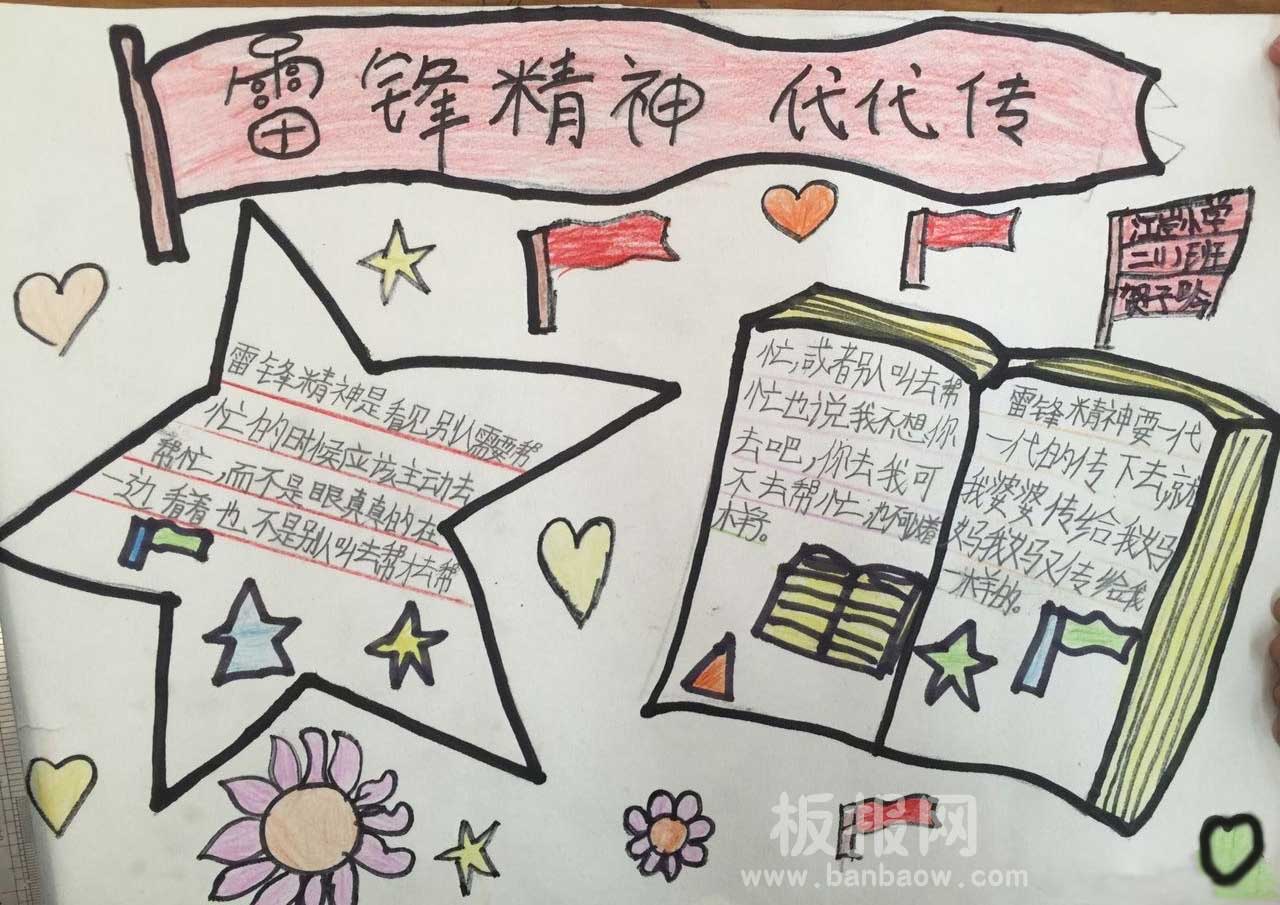 雷锋精神 代代传
江岩小学
二(1)班
贺子
雷锋精神是看见别人需要帮
忙的时候应该主动去
帮忙,而不是眼真真的在
一边看着也不是别人叫去帮才去帮
忙,或者别人叫去帮
忙也说我不想,你
去吧,你去我可
不去帮忙
样。
雷锋精神要一代
一代的传下去,就
我婆婆传给我妈
妈我妈又传给我
一样的。
板报网
www.banbaow.com